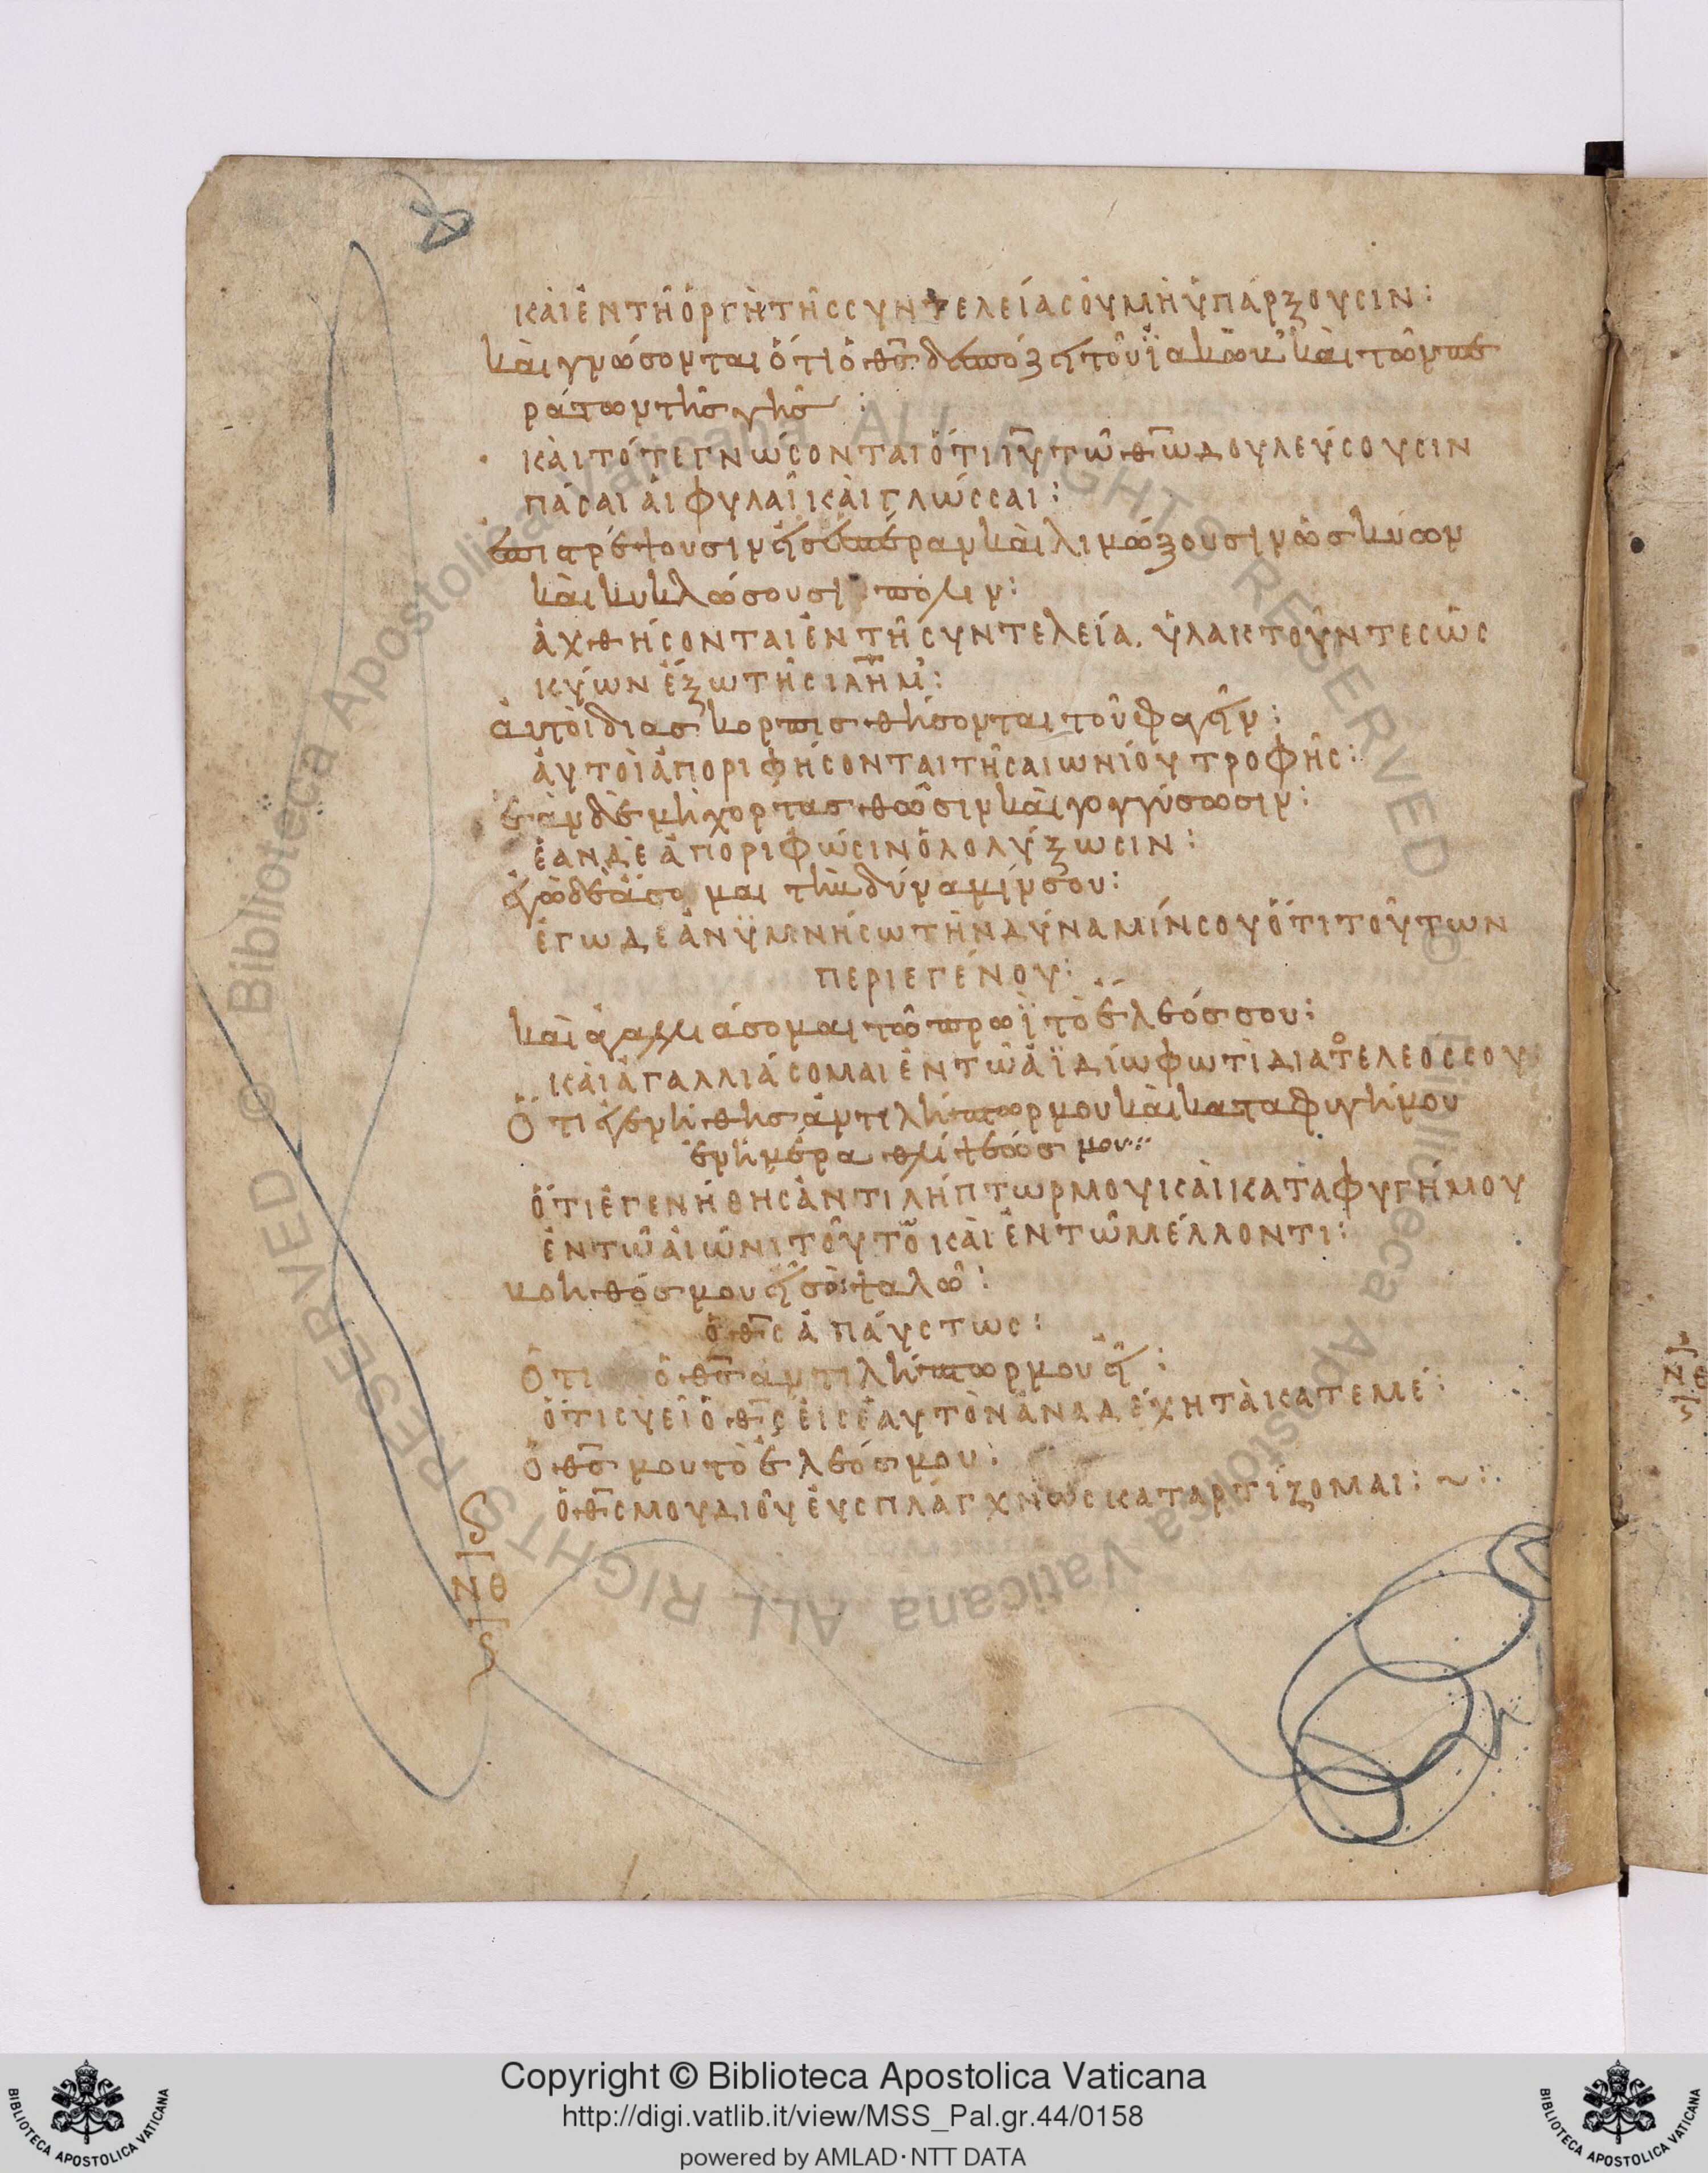 κὰι ἐν τῆ ὀργὴ τῆς συντελείας ὀυ μὴ ὑπάρξουσιν :
κὰι γνώσονται ὅτι ὁ θς δεσπόζει τοῦ ϊακὼκ κὰι τῶν πε
ράτων τῆς γῆς :
κὰι τότε γνώσονται ὅτι ιυ τῶ θω δουλεύσουσιν
πάσαι ἁι φυλαῖ κὰι γλώσσαι :
ἐπιστρέψουσιν εἰς ἑσπέραν κὰι λιμώξουσιν ὡς κύων
κὰι κυκλώσουσι πόλιν :
ἀχθήσονται ἐν τῆ συντελεία. ὑλακτοῦντες ὡς
κύων ἔξω τῆς ιλημ :
ἀυτὸι διασκορπισθήσονται τοῦ φαγεῖν :
ἀυτοὶ ἀποριφήσονται τῆς αιωνίου τροφῆς :
ἐὰν δὲ μὴ χορτασθῶσιν κὰι γογγύσωσιν :
ἐὰν δὲ ἀποριφώσιν ὀλολύξωσιν :
ἐγὼ δὲ ἄσομαι τὴν δύναμίν σου :
ἐγω δὲ ἀνϋμνήσω τὴν δύναμίν σου ὅτι τοῦτων
περιεγένου :
κὰι ἀγαλλιάσομαι τῶ πρωῒ τὸ ἔλεός σου :
κὰι ἀγαλλιάσομαι ἐν τῶ ἀϊδίω φωτὶ διὰ τὸ ἔλεος σου
Ὅτι ἐγενήθης ἀντιλήπτωρ μου κὰι καταφυγή μου
ἐν ἡμέρα θλίψεώς μου
ὅτι ἐγενήθης ἀντιλήπτωρ μου κὰι καταφυγή μου
ἐν τῶ ἀιῶνι τοῦτο κὰι ἐν τῶ μέλλοντι :
βοηθός μου εἶ σὸι ψαλῶ :
ὁ θς ἀπάυστως :
Ὅτι ὁ θς ἀντιλήπτωρ μου εἶ :
ὅτι συ εῖ ὁ θς ἐις ἑαυτὸν ἀναδέχητὰι κατεμέ :
Ὁ θς μου τὸ ἔλεός μου :
ὁ θς μου δι οῦ ἐυσπλάγχνως καταρτίζομαι : ~ :
ΝΘ
Copyright © Biblioteca Apostolica Vaticana
http://digi.vatlib.it/view/MSS_Pal.gr.44/0158
powered by AMLAD·NTT DATA